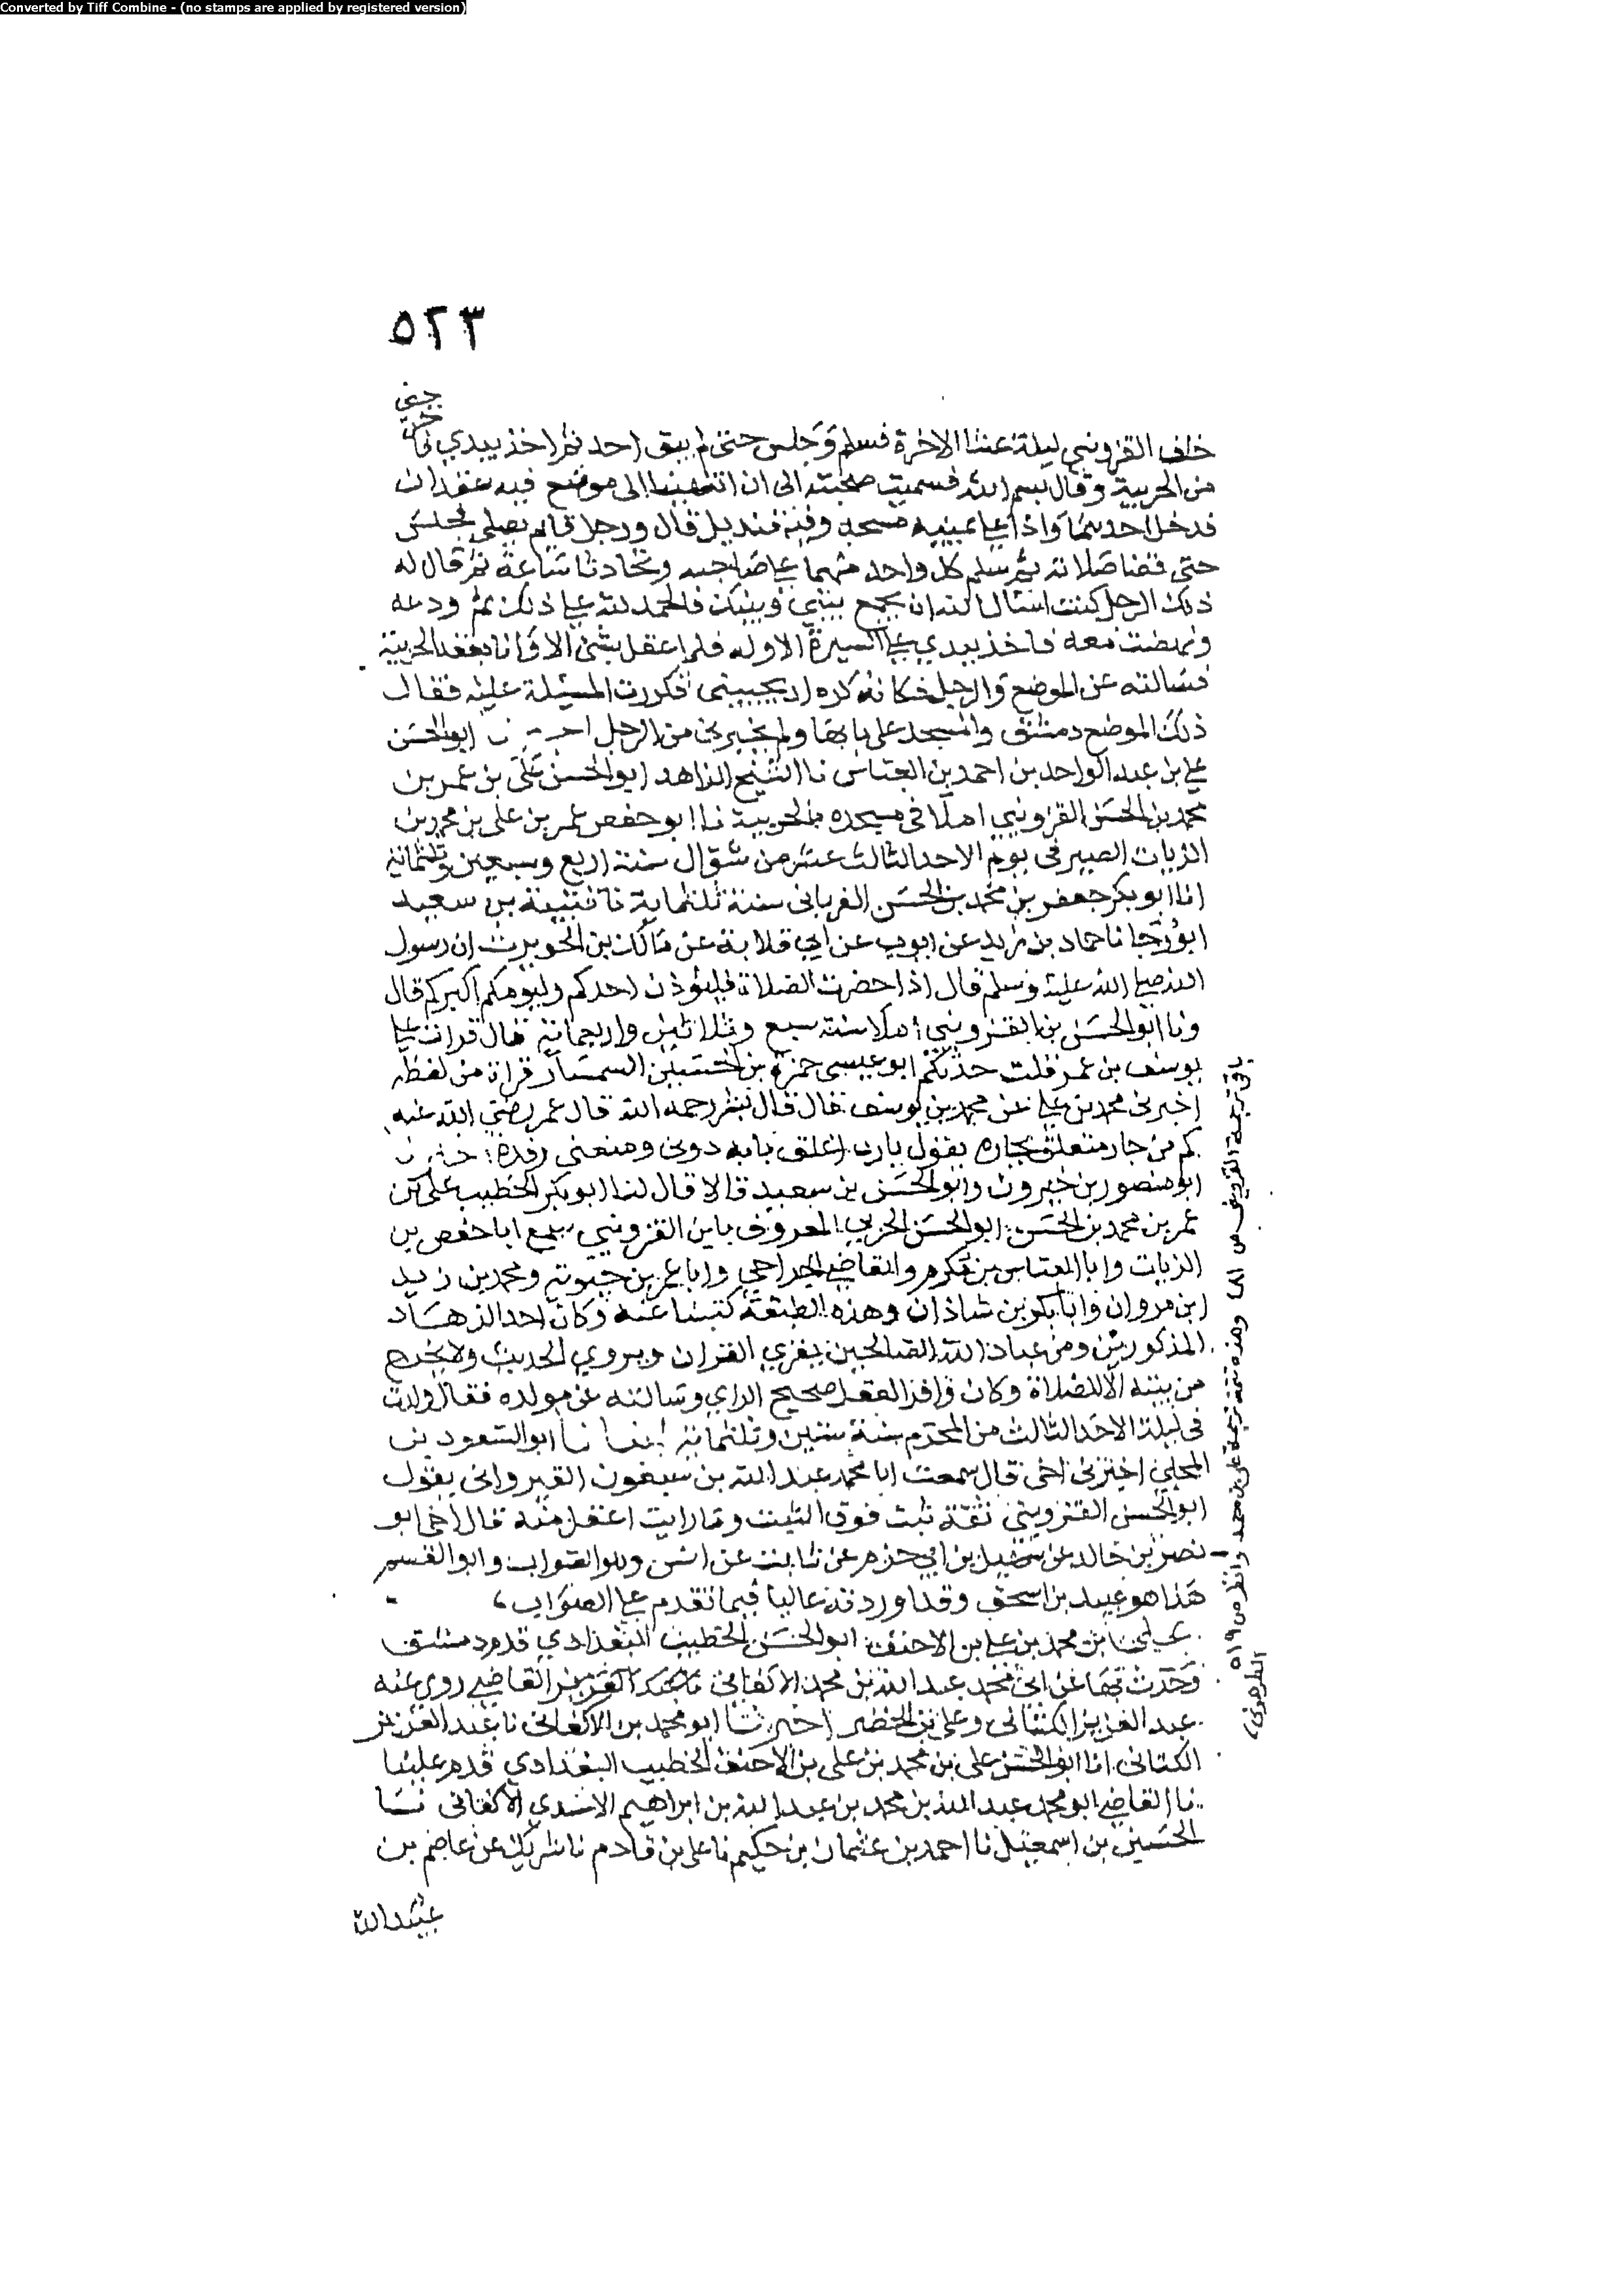 Converted by Tiff Combine - (no stamps are applied by registered version)
٥٢٣
خلف القزويني ليلة عشا الاخرة فسلم وجلس حتى لم يبق احد ثم اخذ بيدي
من الحربية وقال بسم الله فسميت صحبته الى ان انتهينا الى موضع فيه عقدان
فدخل احدهما واذا على يمينه مسجد وفيه قنديل قال ورجل قايم يصلي فجلس
حتى قضا صلاته ثم سلم كل واحد منهما على صاحبه وتحادثا ساعة ثم قال له
ذلك الرجل كنت اسال الله ان يجمع بيني وبينك فالحمد لله على ذلك ثم ودعه
ونهضت معه فاخذ بيدي على السيرة الاوله فلم اعقل بشئ الا وانا بعقد الحربية
فسالته عن الموضع والرجل فكانه كره ان يجيبني فكررت المسئلة عليه فقال
ذلك الموضع دمشق والمسجد على بابها ولم يخبرني من الرجل ابو الحسن
علي بن عبد الواحد بن احمد بن العباس نا الشيخ الزاهد ابو الحسن علي بن عمر بن
محمد بن الحسن القزويني املا في مسجده بالحربية نا ابو حفص عمر بن على بن محمد بن
الزيات الصير في يوم الاحد الثالث عشر من شوال سنة اربع وسبعين وثلثمائة
انا ابو بكر جعفر بن محمد بن الحسن الفريابى سنة ثلثماية نا قتيبة بن سعيد
ابو رجا نا حماد بن زيد عن ايوب عن ابي قلابة عن مالك بن الحويرث ان رسول
الله صلى الله عليه وسلم قال اذا حضرت الصلاة فليؤذن احدكم وليومكم اكبركم قال
ونا ابو الحسن بن القزويني املا سنة سبع وثلاثين واربعمائة قال قرات على
يوسف بن عمر قلت حدثكم ابو عيسى حمزة بن الحسين السمسار قراة من لفظه
اخبرنى محمد بن على عن محمد بن يوسف قال قال بشر رحمه الله قال عمر رضي الله عنه
كم من جار متعلق بجاره يقول يارب اغلق بابه دونى ومنعني رفده
ابو منصور بن خيرون وابو الحسن بن سعيد قالا قال لنا ابو بكر الخطيب على بن
عمر بن محمد بن الحسن ابو الحسن الحربي المعروف بابن القزويني سمع ابا حفص بن
الزيات وابا العباس بن مكرم والقاضي الجراحي وابا عمر بن حيويه ومحمد بن زيد
ابن مروان وابا بكر بن شاذان وهذه الطبقة كتبنا عنه وكان احد الزهاد
المذكورين ومن عباد الله الصالحين يقري القران ويروي الحديث ولا يخرج
من بيته الا للصلاة وكان وافر العقل صحيح الراي وسالته عن مولده فقال ولدت
في ليلة الاحد الثالث من المحرم سنة ستين وثلثمائة انبا نا ابو السعود بن
المجلى اخبرنى اخى قال سمعت ابا محمد عبد الله بن سبعون القيروانى يقول
ابو الحسن القزويني ثقة ثبت فوق الثبت وما رايت اعقل منه قال اخى ابو
نصر بن خالد عن سهيل بن ابي حزم عن ثابت عن انس وهو الصواب وابو القسم
هذا هو عبيد بن اسحق وقد اوردته عاليا فيما تقدم على الصواب
على بن محمد بن علي بن الاحنف ابو الحسن الخطيب البغدادي قدم دمشق
وحدث بها عن ابى محمد عبد الله بن محمد الاكفاني القاضي روى عنه
عبد العزيز الكتانى وعلى بن الخضر اخبرنا ابو محمد بن الاكفانى نا عبد العزيز
الكتانى انا ابو الحسن على بن محمد بن على بن الاحنف الخطيب البغدادي قدم علينا
نا القاضي ابو محمد عبد الله بن محمد بن عبد الله بن ابراهيم الاسدي الاكفانى نا
الحسين بن اسمعيل نا احمد بن عثمان بن حكيم نا على بن قادم نا شريك عن عاصم بن
عبيد الله
باقي ترجمة القزويني ص ٤٨١ وهذه تتمة ترجمة على بن محمد وانظر ص ٥١٩